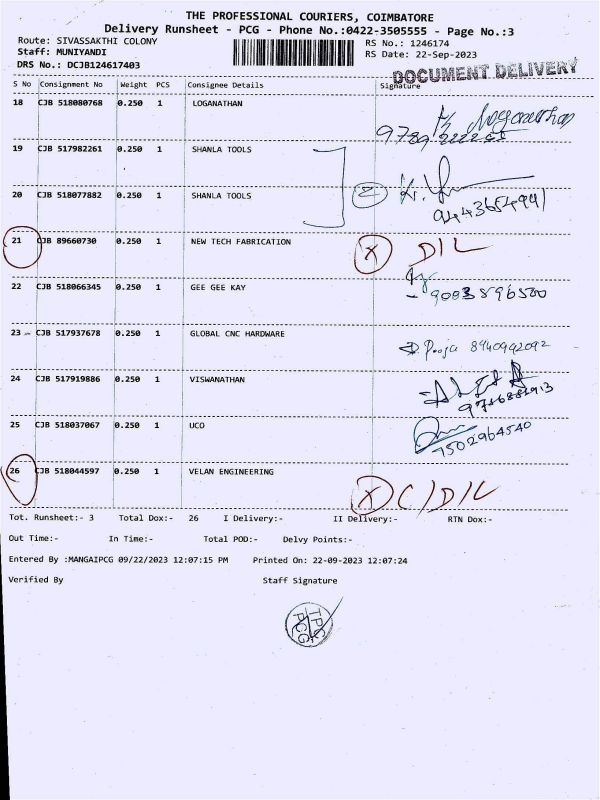 THE PROFESSIONAL COURIERS, COIMBATORE
Delivery Runsheet - PCG - Phone No.:0422-3505555 - Page No.:3
Route: SIVASSAKTHI COLONY RS No.: 1246174
Staff: MUNIYANDI RS Date: 22-Sep-2023
DRS No.: DCJB124617403
DOCUMENT DELIVERY
S No Consignment No Weight PCS Consignee Details Signature
18 CJB 518080768 0.250 1 LOGANATHAN
19 CJB 517982261 0.250 1 SHANLA TOOLS
20 CJB 518077882 0.250 1 SHANLA TOOLS
9443654941
21 CJB 89660730 0.250 1 NEW TECH FABRICATION X D/L
22 CJB 518066345 0.250 1 GEE GEE KAY
9003596500
23 CJB 517937678 0.250 1 GLOBAL CNC HARDWARE
D. Pooja 8940992092
24 CJB 517919886 0.250 1 VISWANATHAN
25 CJB 518037067 0.250 1 UCO
7502964540
26 CJB 518044597 0.250 1 VELAN ENGINEERING
X C/D/L
Tot. Runsheet:- 3 Total Dox:- 26 I Delivery:- II Delivery:- RTN Dox:-
Out Time:- In Time:- Total POD:- Delvy Points:-
Entered By :MANGAIPCG 09/22/2023 12:07:15 PM Printed On: 22-09-2023 12:07:24
Verified By Staff Signature
TPC
PCG